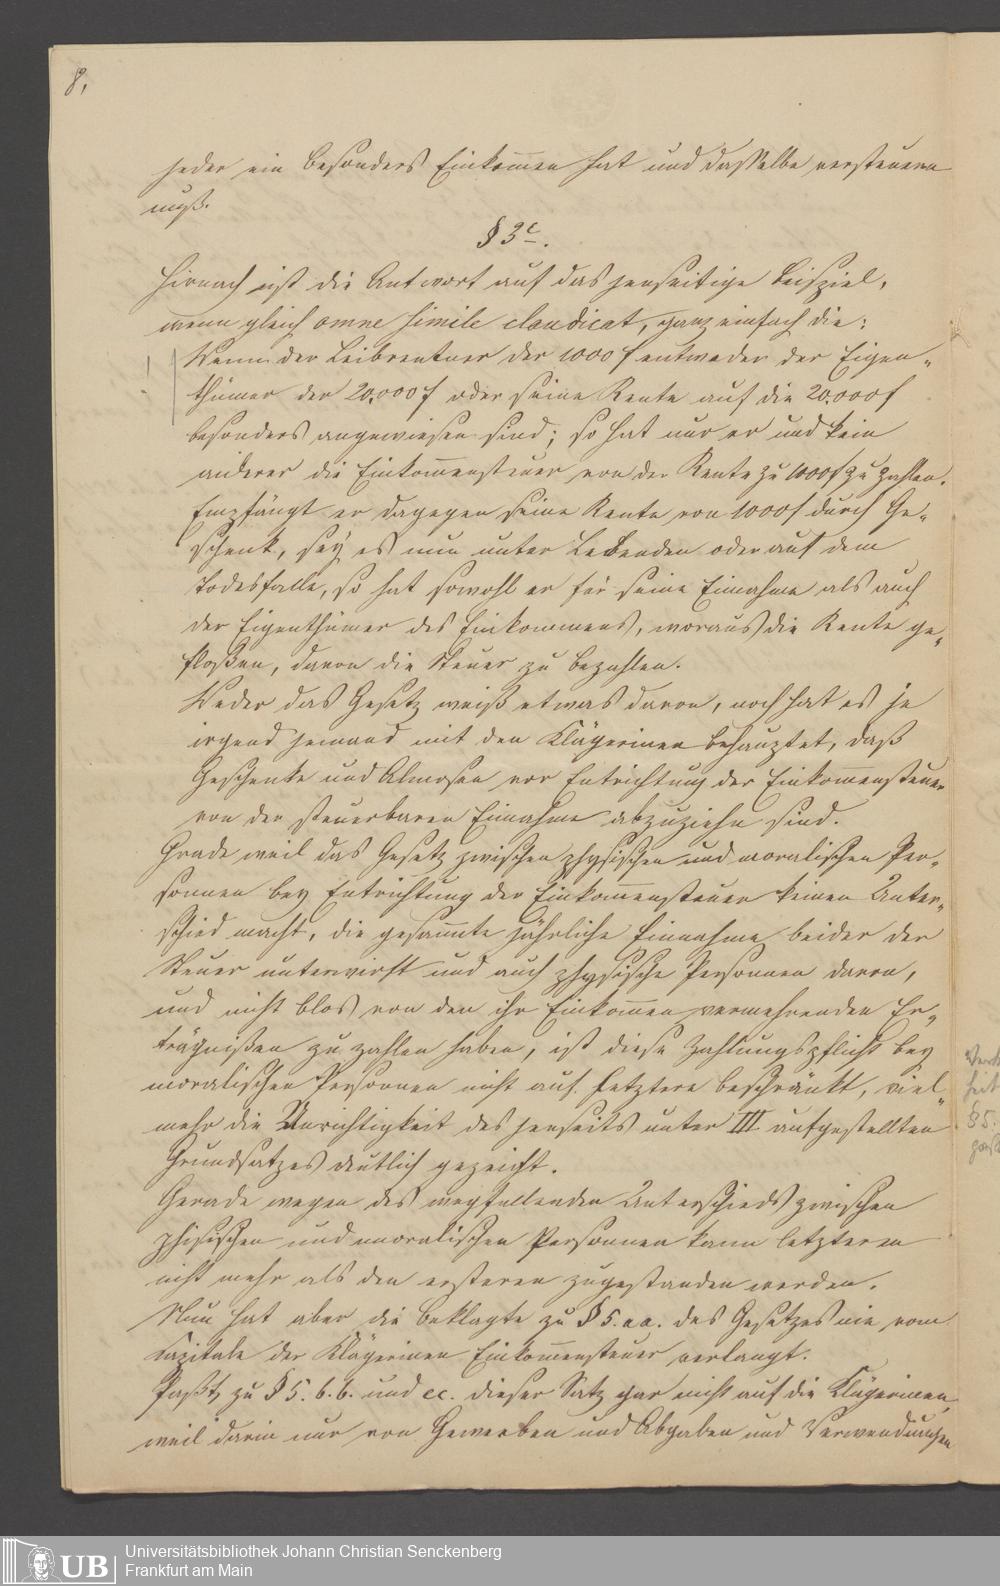 8,
jeder ein besonders Einkom̄en hat und dasselbe versteuern
muß.
§ 3c.
Hienach ist die Antwort auf das jenseitige Beispiel,
wenn gleich omne simile claudicat, ganz einfach die:
Wenn der Leibrentner der 1000 f entweder der Eigen-
thümer der 20,000 f oder seine Rente auf die 20,000 f
besonders angewiesen sind; so hat nur er und kein
anderer die Einkom̄ensteuer von der Rente zu 1000 f zu zahlen.
Empfängt er dagegen seine Rente von 1000 f durch Ge-
schenk, sey es nun unter Lebenden oder auf dem
Todesfalle, so hat sowohl er für seine Einnahme als auch
der Eigenthümer des Einkommens, woraus die Rente ge-
floßen, davon die Steuer zu bezahlen.
Weder das Gesetz weiß etwas davon, noch hat es je
irgend jemand mit den Klägerinen behauptet, daß
Geschenke und Almosen vor Entrichtung der Einkom̄ensteuer
von der steuerbaren Einnahme abzuziehn sind.
Grade weil das Gesetz zwischen physischen und moralischen Per-
sonnen bey Entrichtung der Einkom̄ensteuer keinen Unter-
schied macht, die gesam̄te jährliche Einnahme beider der
Steuer unterwirft und auch physische Personnen davon,
und nicht blos von den ihr Einkom̄en vermehrenden Er-
trägnißen zu zahlen haben, ist diese Zahlungspflicht bey
moralischen Personnen nicht auf letztere beschränkt, viel-
mehr die Unrichtigkeit des jenseits unter III aufgestellten
Grundsatzes deutlich gezeicht.
Gerade wegen des wegfallenden Unterschieds zwischen
phisischen und moralischen Personnen kann letzteren
nicht mehr als den ersteren zugestanden werden.
Nun hat aber die Beklagte zu § 5. aa. des Gesetzes nie vom
Capitale der Klägerinen Einkom̄ensteuer verlangt.
Paßt zu § 5. b.b. und cc. dieser Satz gar nicht auf die Klägerinen,
weil darin nur von Gewerben und Abgaben und Verwendungen
§ 5.
UB
Universitätsbibliothek Johann Christian Senckenberg
Frankfurt am Main